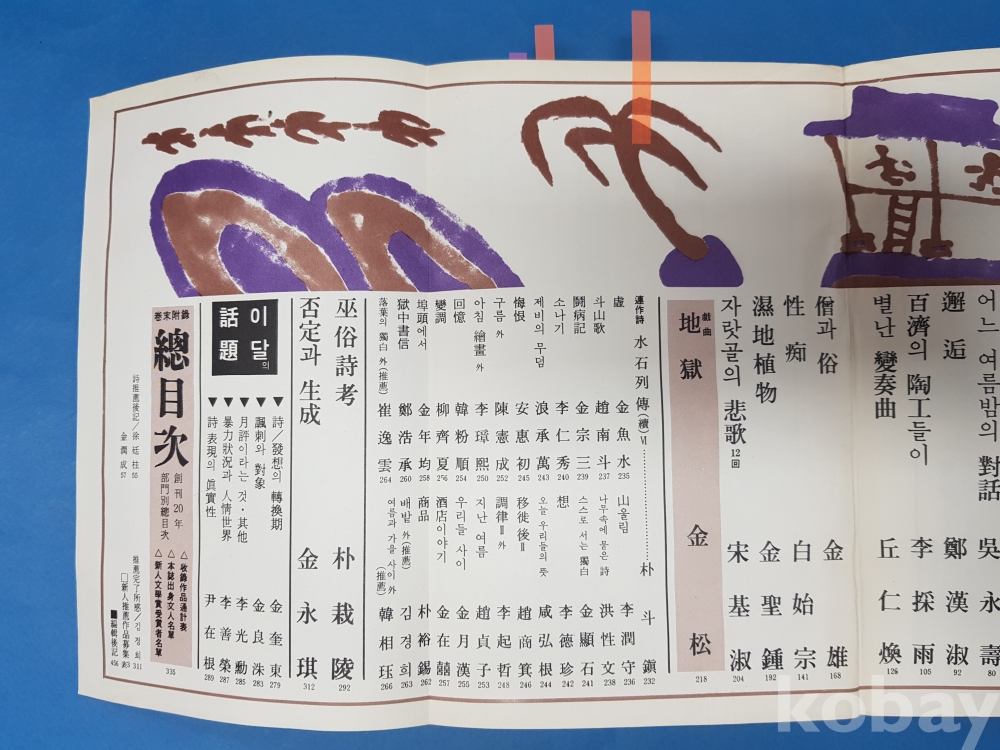 어느 여름밤의 對話 吳永壽 80
邂逅 鄭漢淑 92
百濟의 陶工들이 李採雨 105
별난 變奏曲 丘仁煥 126
僧과 俗 金雄 168
性痴 白始宗 141
濕地植物 金聖鍾 192
자랏골의 悲歌 12回 宋基淑 204
戱曲 地獄 金松 218
連作詩 水石列傳(續) Ⅵ 朴斗鎭 232
虛 金魚水 235
山울림 李潤守 236
斗山歌 趙南斗 237
나무속에 묻은 詩 洪性文 238
鬪病記 金宗三 239
스스로 서는 獨白 金顯石 241
소나기 李仁秀 240
想 李德珍 242
제비의 무덤 浪承萬 243
오늘 우리들의 뜻 咸弘根 244
悔恨 安惠初 245
移徙後Ⅱ 趙商箕 246
구름 外 陳憲成 247
調律Ⅱ 外 李起哲 248
아침 繪畫 外 李璋熙 250
지난 여름 趙貞子 253
回憶 韓粉順 254
우리들 사이 金月漢 255
變調 柳齊夏 256
酒店이야기 金在囍 257
埠頭에서 金年均 258
商品 朴裕錫 259
獄中書信 鄭浩承 260
배밭 外(推薦) 김경희 263
落葉의 獨白 外(推薦) 崔逸雲 264
여름과 가을 사이 外(推薦) 韓相珏 266
巫俗詩考 朴栽陵 292
否定과 生成 金永琪 312
이달의 話題
▼詩/發想의 轉換期 金奎東 279
▼諷刺와 對象 金良洙 283
▼月評이라는 것·其他 李光勳 285
▼暴力狀況과 人情世界 李善榮 287
▼詩 表現의 眞實性 尹在根 289
卷末附錄
總目次 創刊20年 部門別總目次
△收錄作品通計表
△本誌出身文人名單
△新人文學賞受賞者名單
335
詩推薦後記/徐廷柱 55
金潤成 57
推薦完了所感/김정희 311
□新人推薦作品募集 表3
■編輯後記 456
kobay